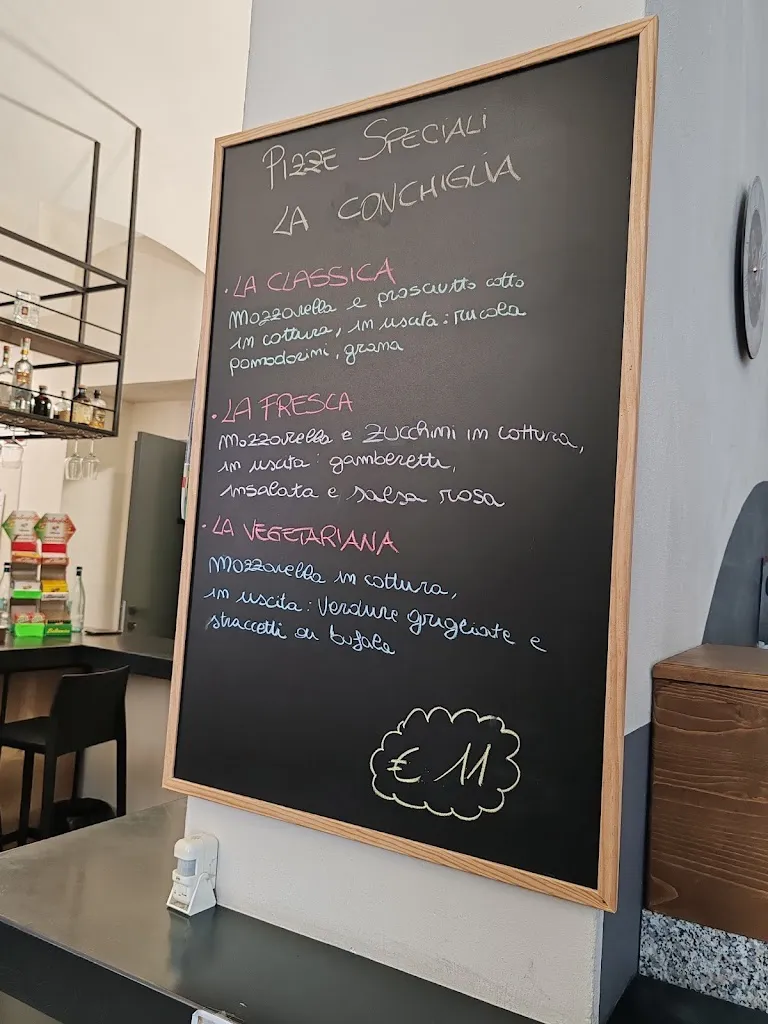 PIZZE SPECIALI
LA CONCHIGLIA
· LA CLASSICA
Mozzarella e prosciutto cotto
in cottura, in uscita: rucola
pomodorini, grana
· LA FRESCA
Mozzarella e zucchini in cottura,
in uscita: gamberetti,
insalata e salsa rosa
· LA VEGETARIANA
Mozzarella in cottura,
in uscita: Verdure grigliate e
straccetti di bufala
€ 11